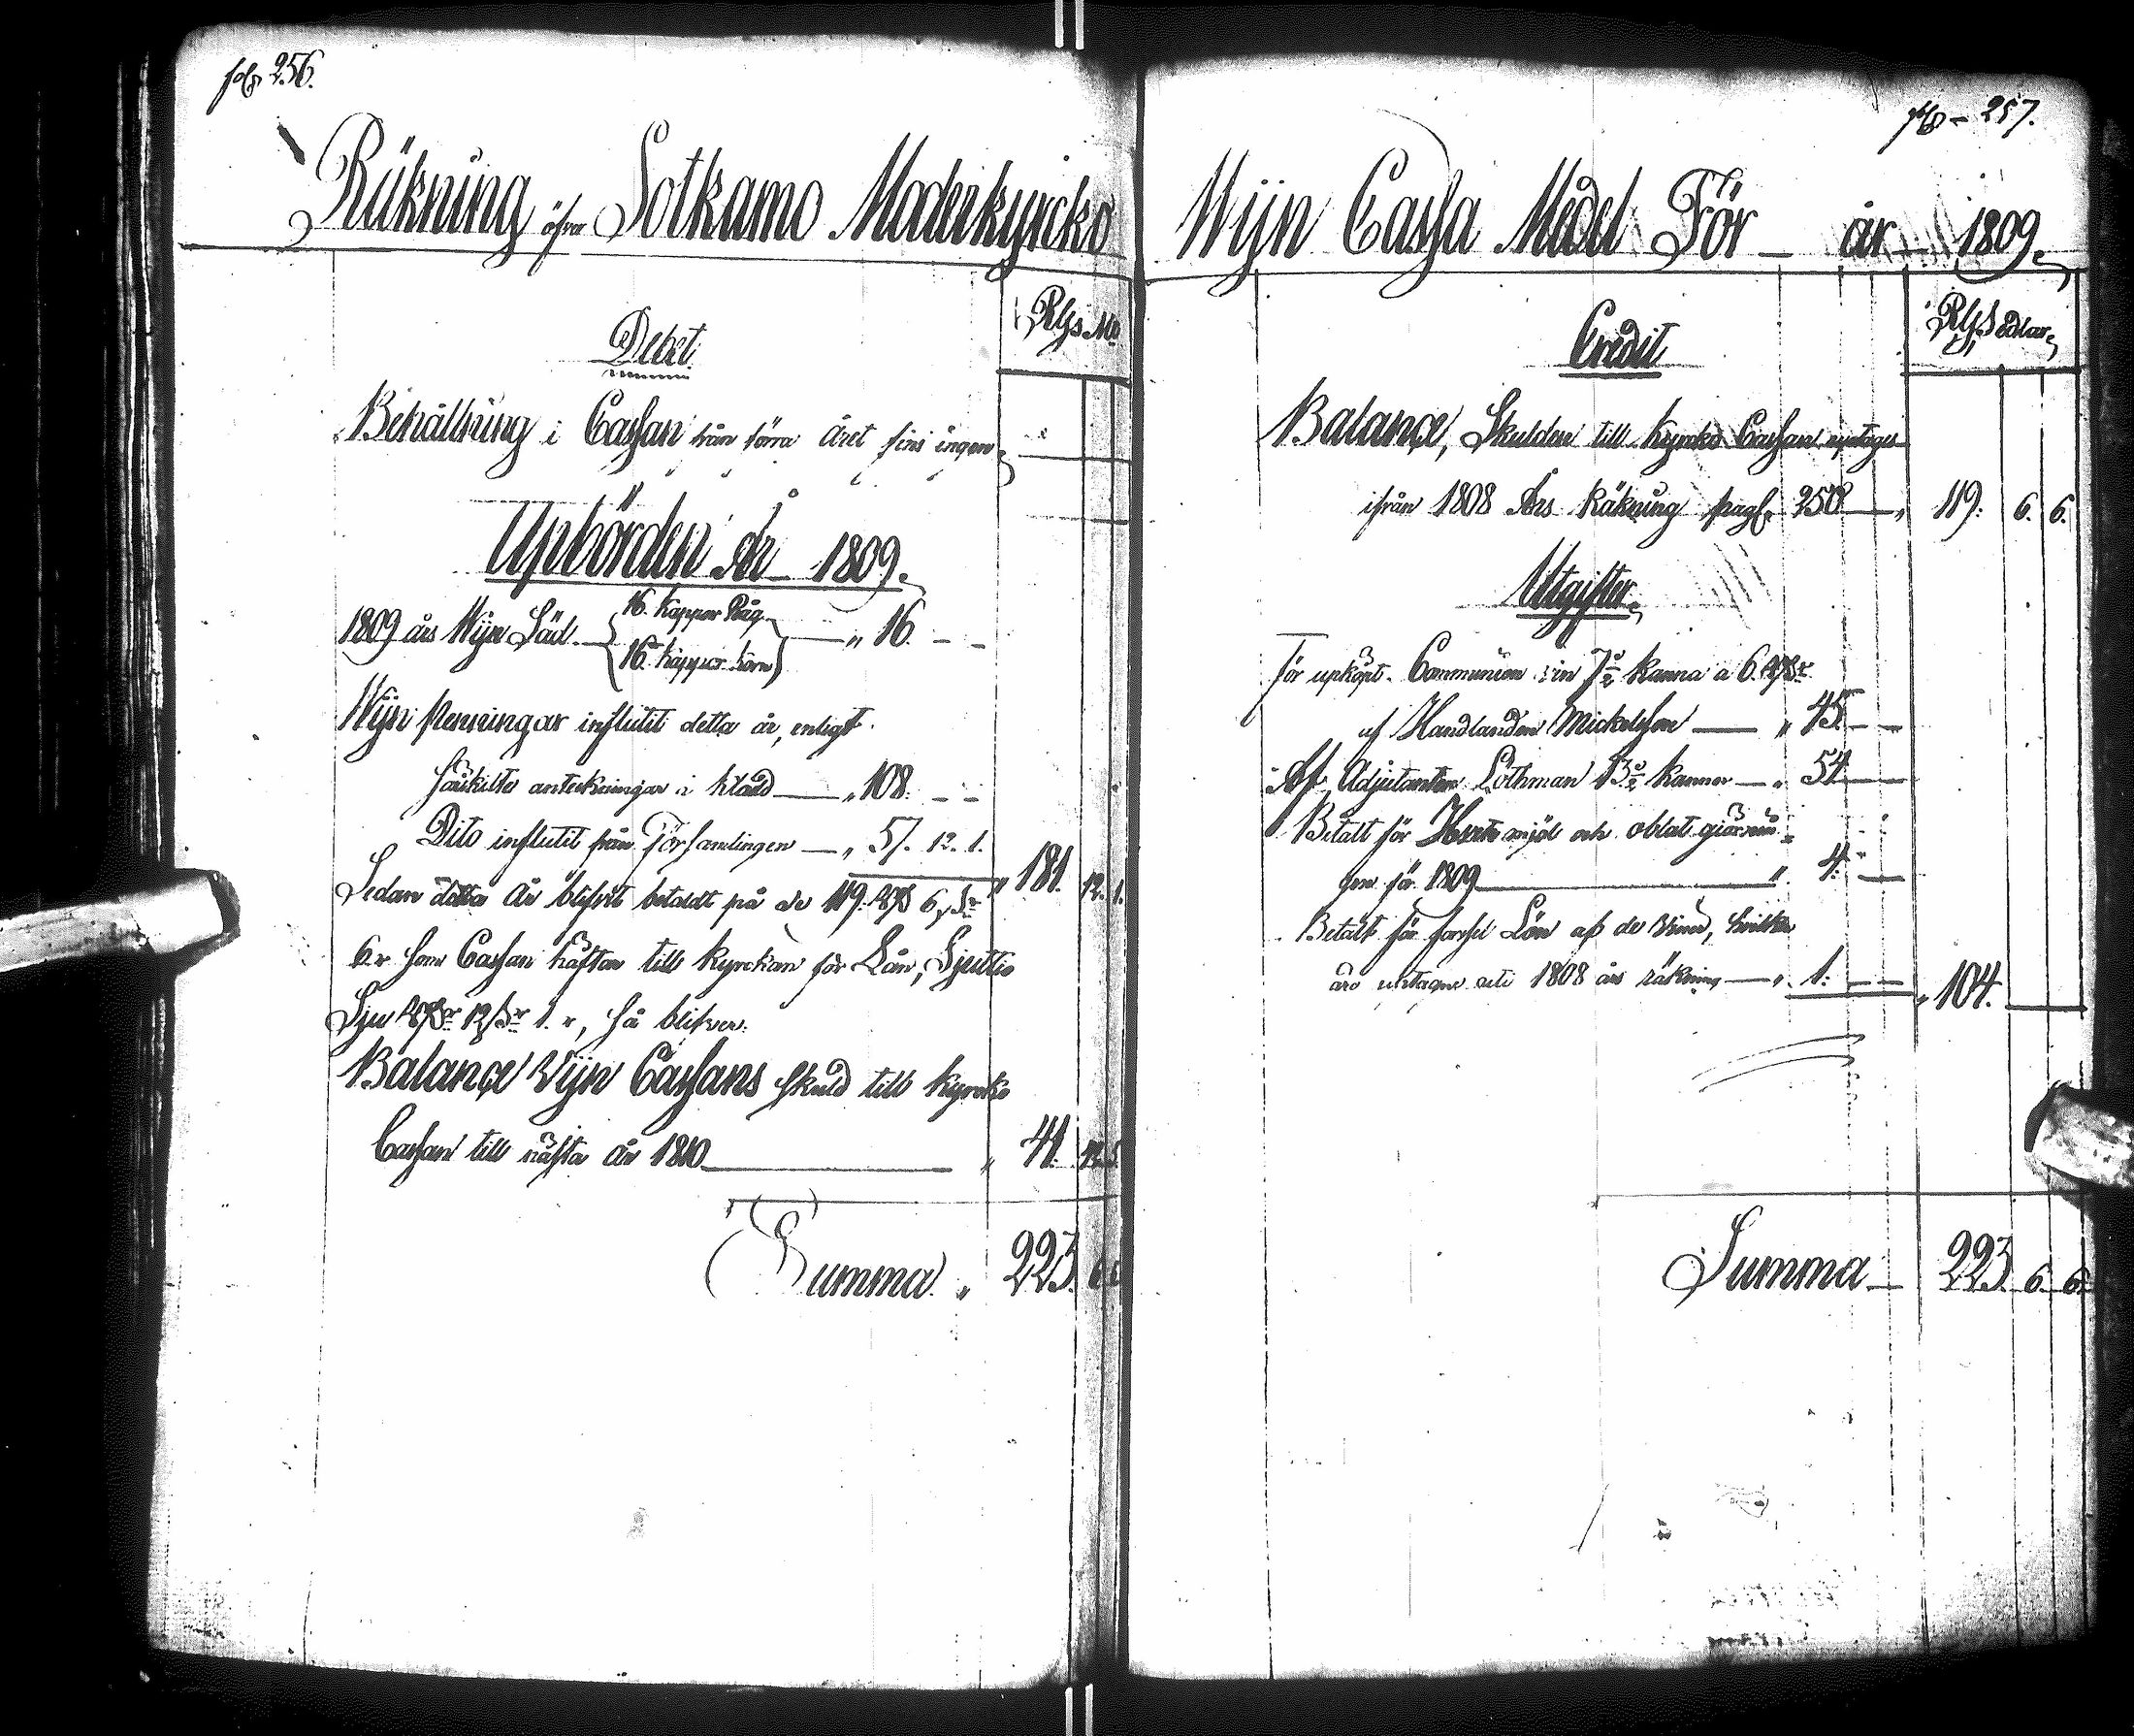 fol. 256.
Räkning öfver Sotkamo Moderkyrcko
Debet
Behållning i Cassan från förra Året fins ingen
Upbörden År 1809.
1809 års Wijn Säd 16. kappar Råg
16 kappar korn „ 16. – –
Wijn penningar influtit detta år, enligt
särskilte anteckningar i klad „ 108. – –
Dito influtit från Församlingen „ 57. 12. 1.
„ 181. 12. 1.
Sedan detta År blifvit betaldt på de 119. Rd 6 s
6 r som Cassan häftar till kyrckan för Lån, Sjuttio
Sju Rdr 12 sr 1. r, så blifver
Balance Wijn Cassans skuld till kyrcko
Cassan till nästa År 1810 „ 41. 12. 5.
Summa „ 223. 6. 6.
fol. 257.
Wijn Cassa Medel För år 1809.
Credit
Rgs Sedlar
Balance, Skulden till kyrcko Cassan uptages
ifrån 1808 Års Räkning pag. 250 „ 119. 6. 6.
Utgifter
För upköpt Communion vin 7 1/2 kanna a 6 Rdr
af Handlanden Mickelsson „ 45. – –
Af Adjutanten Lothman 13 1/2 kannor „ 54. – –
Betalt för mjöl och oblat giörnin
gen för 1809 „ 4. – –
Betalt för Lön af de viner, hvilka
äro uptagne uti 1808 års räkning „ 1: – –
„ 104.
Summa 223. 6. 6.